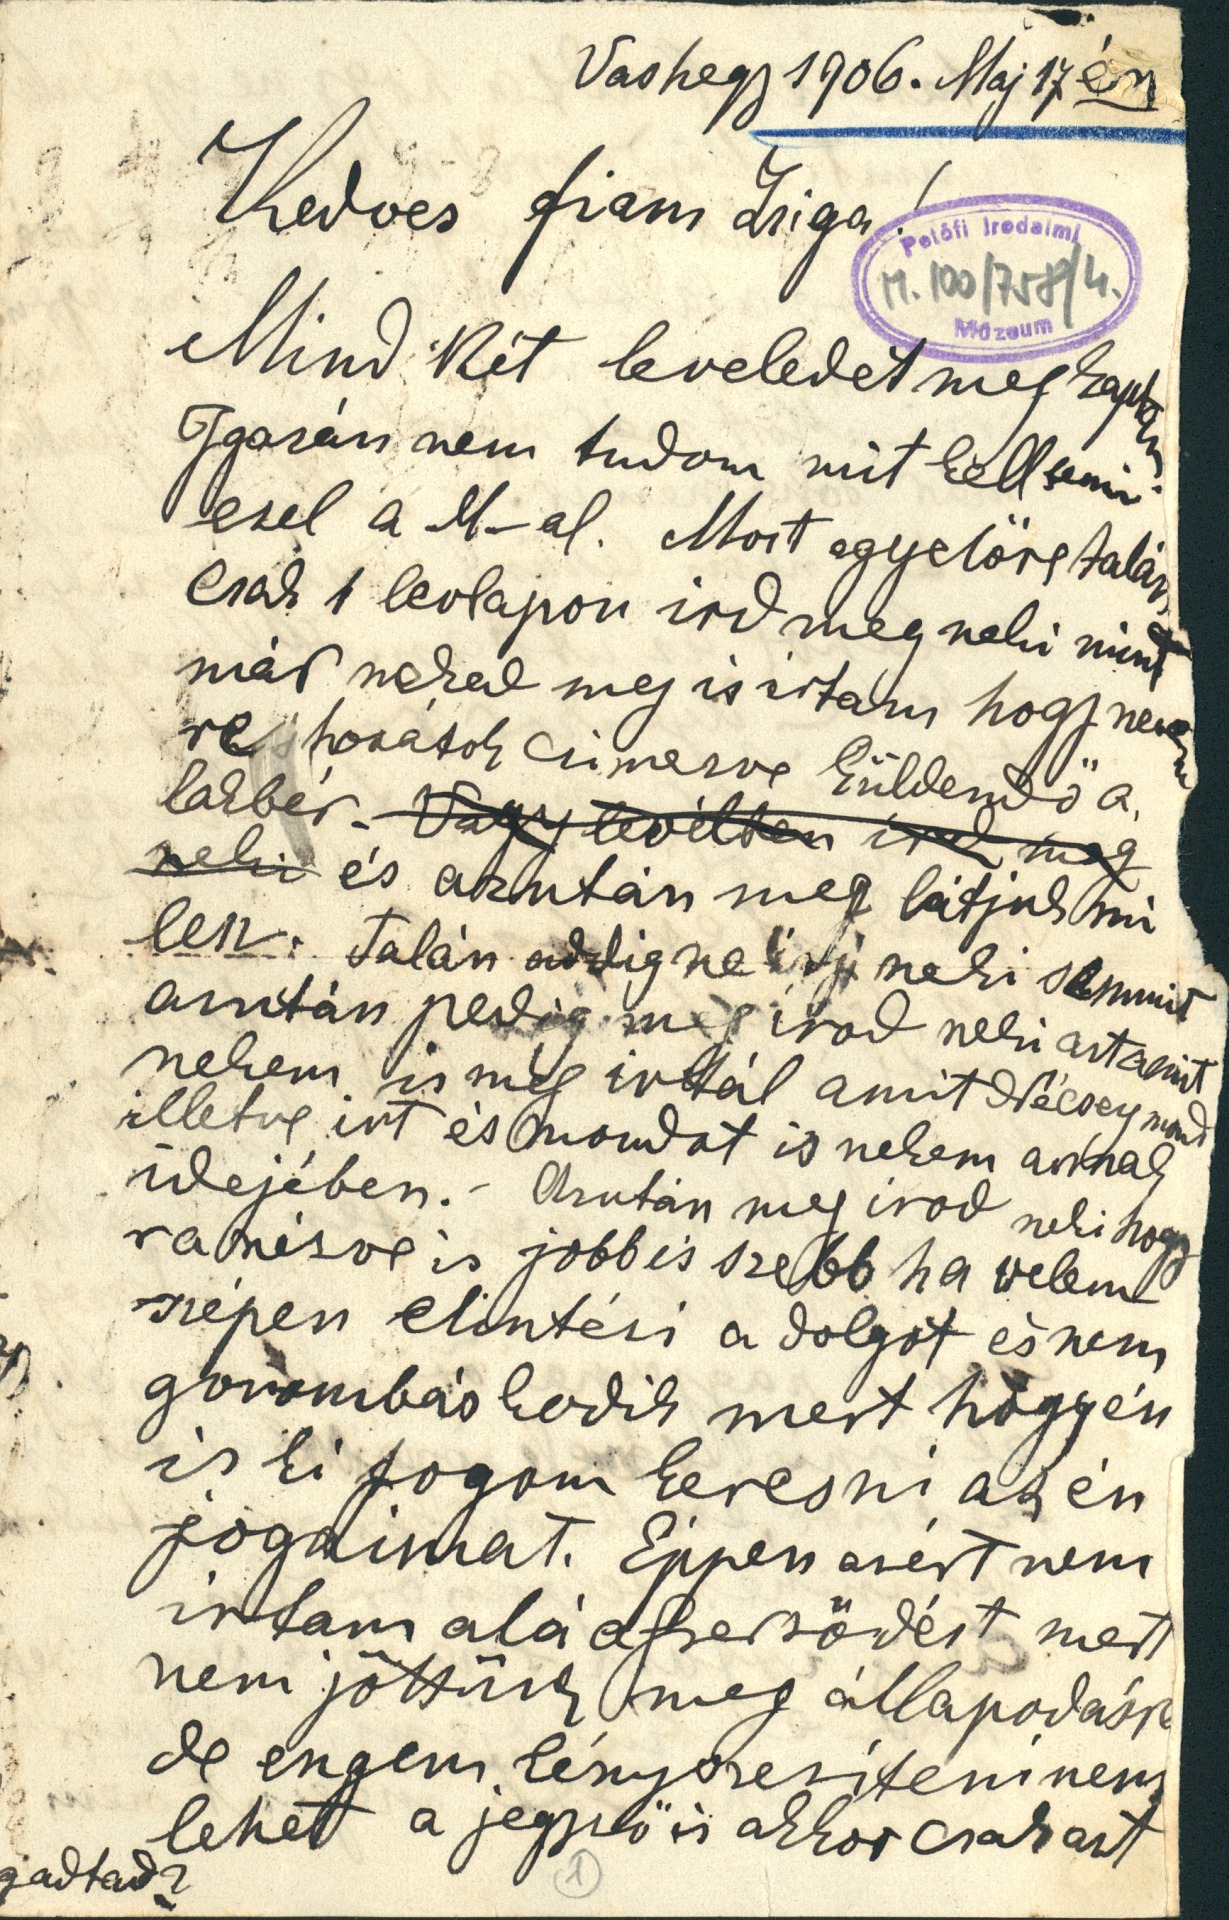 Vashegy 1906. Máj 17 én
Kedves fiam Zsiga!
Petőfi Irodalmi
M. 100/758/4.
Múzeum
Mind két leveledet meg kaptam
Igazán nem tudom mit kell
ezel a M-al. Most egyelőre talán
csak 1 levlapon ird meg neki mint
már neked meg is irtam hogy nevem
re hozátok cimezve küldendő a
lakbér. Vagy levélben irod meg
neki és azután meg látjuk mi
lesz. Talán addig ne irj neki semmit
azután pedig meg irod neki azt amit
nekem is meg irtál amit Nécsey mond
illetve irt és mondot is nekem annak
idejében. - Azután meg irod neki hogy
ra nézve is jobb és szebb ha velem
szépen elintézi a dolgot és nem
gorombáskodik mert hogy én
is ki fogom keresni az én
jogaimat. Éppen azért nem
irtam alá a szerződést mert
nem jöttünk meg állapodásra
de engem kényszeríteni nem
lehet a jegyző is akkor csak azt
gadtad?
1